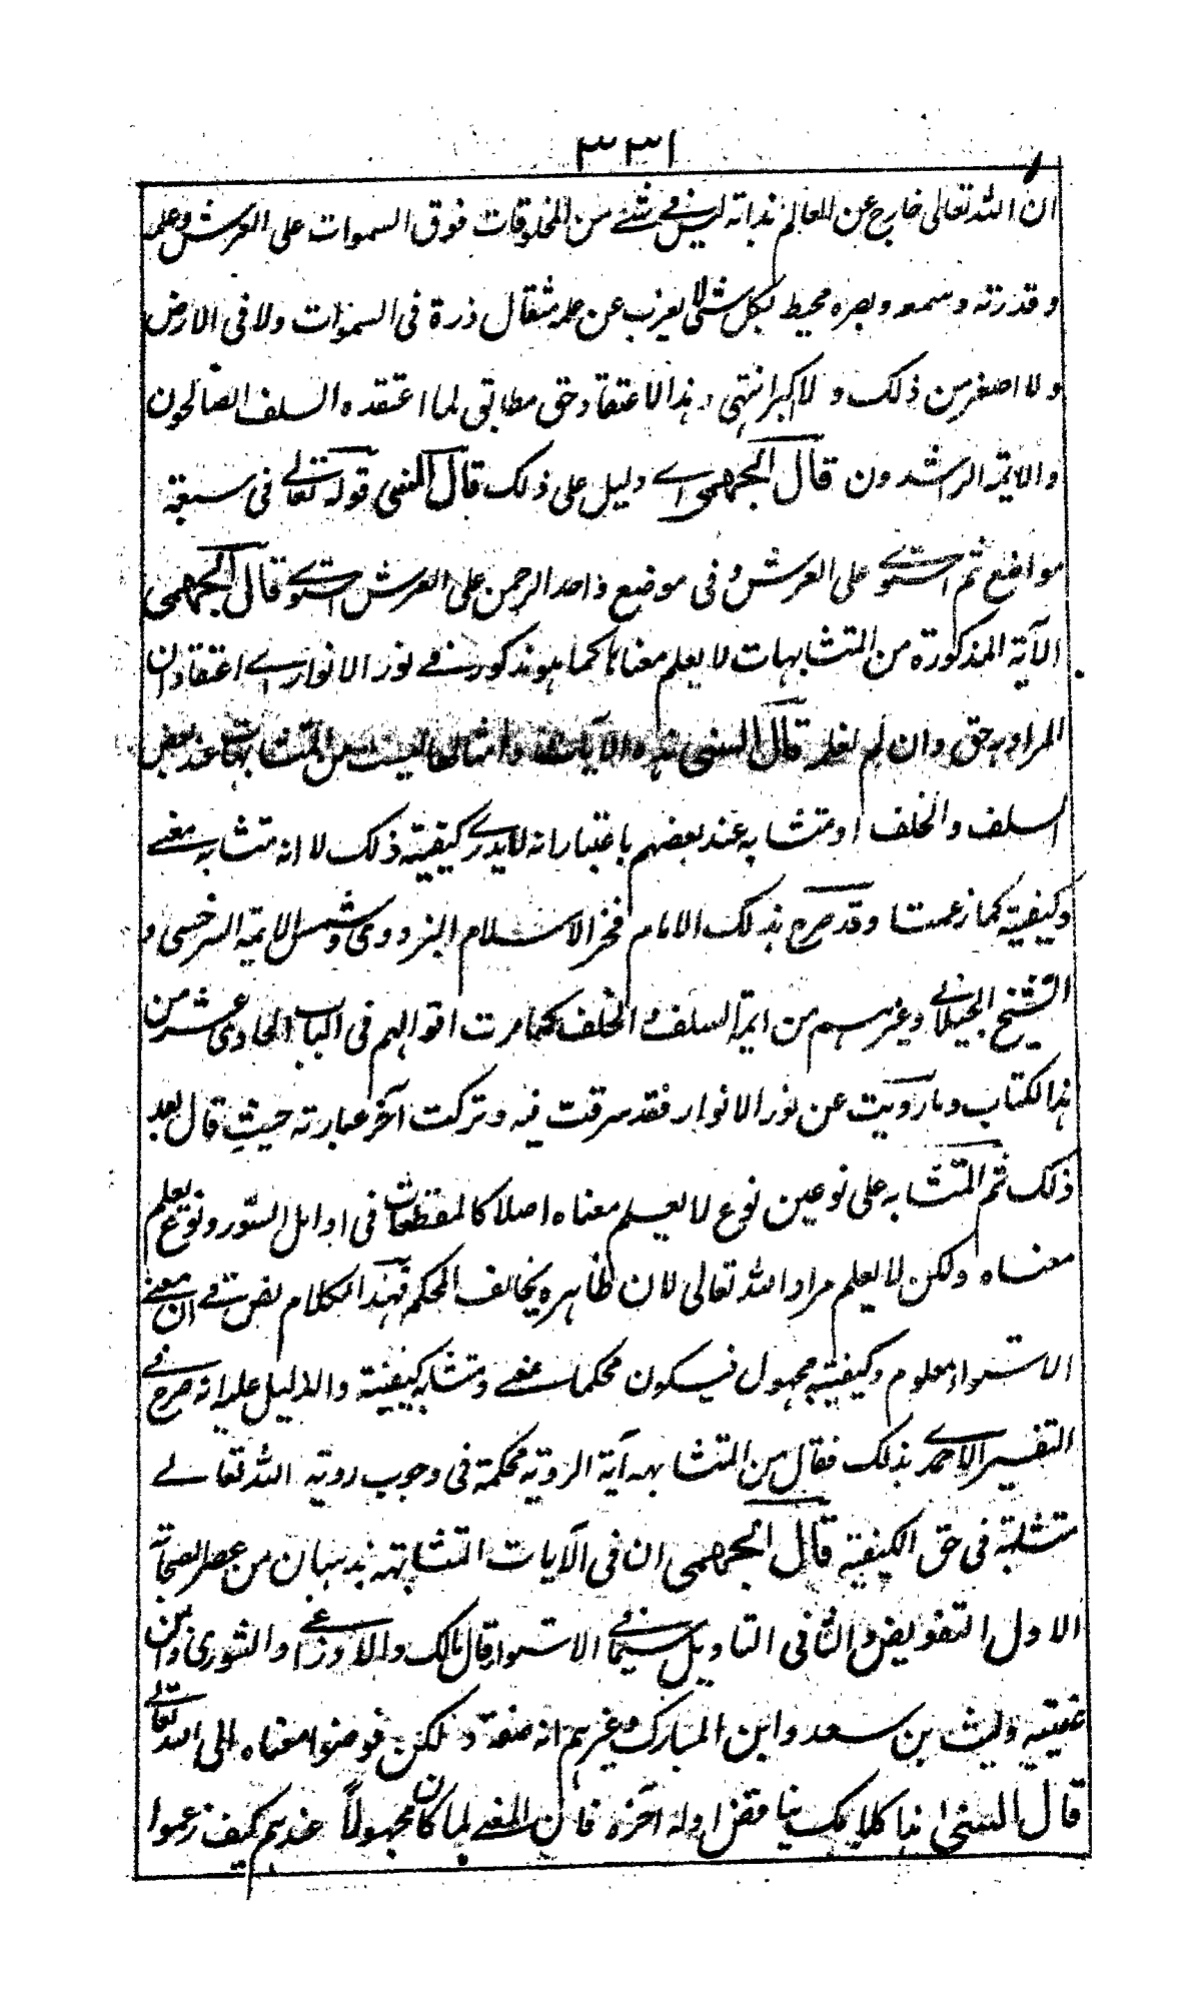 ٣٣١
ان الله تعالى خارج عن العالم بذاته ليس في شئ من المخلوقات فوق السموات على العرش وعلمه
وقدرته وسمعه وبصره محيط بكل شئ لا يعزب عن علمه مثقال ذرة في السموات ولا في الارض
ولا اصغر من ذلك ولا اكبر انتهى وهذا الاعتقاد حق مطابق لما اعتقده السلف الصالحون
والايمة الراشدون قال الجهمى اے دليل على ذلك قال السنى قوله تعالے فى سبعة
مواضع ثم استوے على العرش وفى موضع واحد الرحمن على العرش استوے قال الجهمى
الآية المذكورة من المتشابهات لا يعلم معناها كما هو مذكور في نور الانوار اے اعتقاد ان
المراد به حق وان لم نعلمه قال السنى هذه الآيات وامثالها ليست من المتشابهات عند بعض
السلف والخلف او متشابه عند بعضهم باعتبار انه لا يدرے كيفية ذلك لا انه متشابه معنے
وكيفية كما زعمت وقد صرح بذلك الامام فخر الاسلام البزدوى وشمس الايمة السرخسى و
الشيخ الجيلانے وغيرهم من ايمة السلف والخلف كما مرت اقوالهم فى الباب الحادى عشر من
هذا الكتاب وما رويت عن نور الانوار فقد سرقت فيه وتركت آخر عبارته حيث قال بعد
ذلك ثم المتشابه على نوعين نوع لا يعلم معناه اصلا كالمقطعات فى اوايل السور ونوع يعلم
معناه ولكن لا يعلم مراد الله تعالى لان ظاهره يخالف المحكم فهذا الكلام نص فے ان معنے
الاستواء معلوم وكيفيته مجهول فيكون محكما معنے ومتشابه كيفية والدليل عليه انه صرح فے
التفسير الاحمدے بذلك فقال من المتشابهه آية الروية محكمة فى وجوب روية الله تعالے
متشابهة فى حق الكيفية قال الجهمى ان فى الآيات المتشابهه مذهبان من عصر الصحابة
الاول التفويض والثانى التاويل سيما فے الاستواء قال مالك والاوزاعے والثورى وابن
عيينة وليث بن سعد وابن المبارك وغيرهم انه صفة ولكن فوضوا معناه الى الله تعالے
قال السنى هذا كلامك يناقض اوله آخره فان المعنے لما كان مجهولاً عندهم كيف زعموا